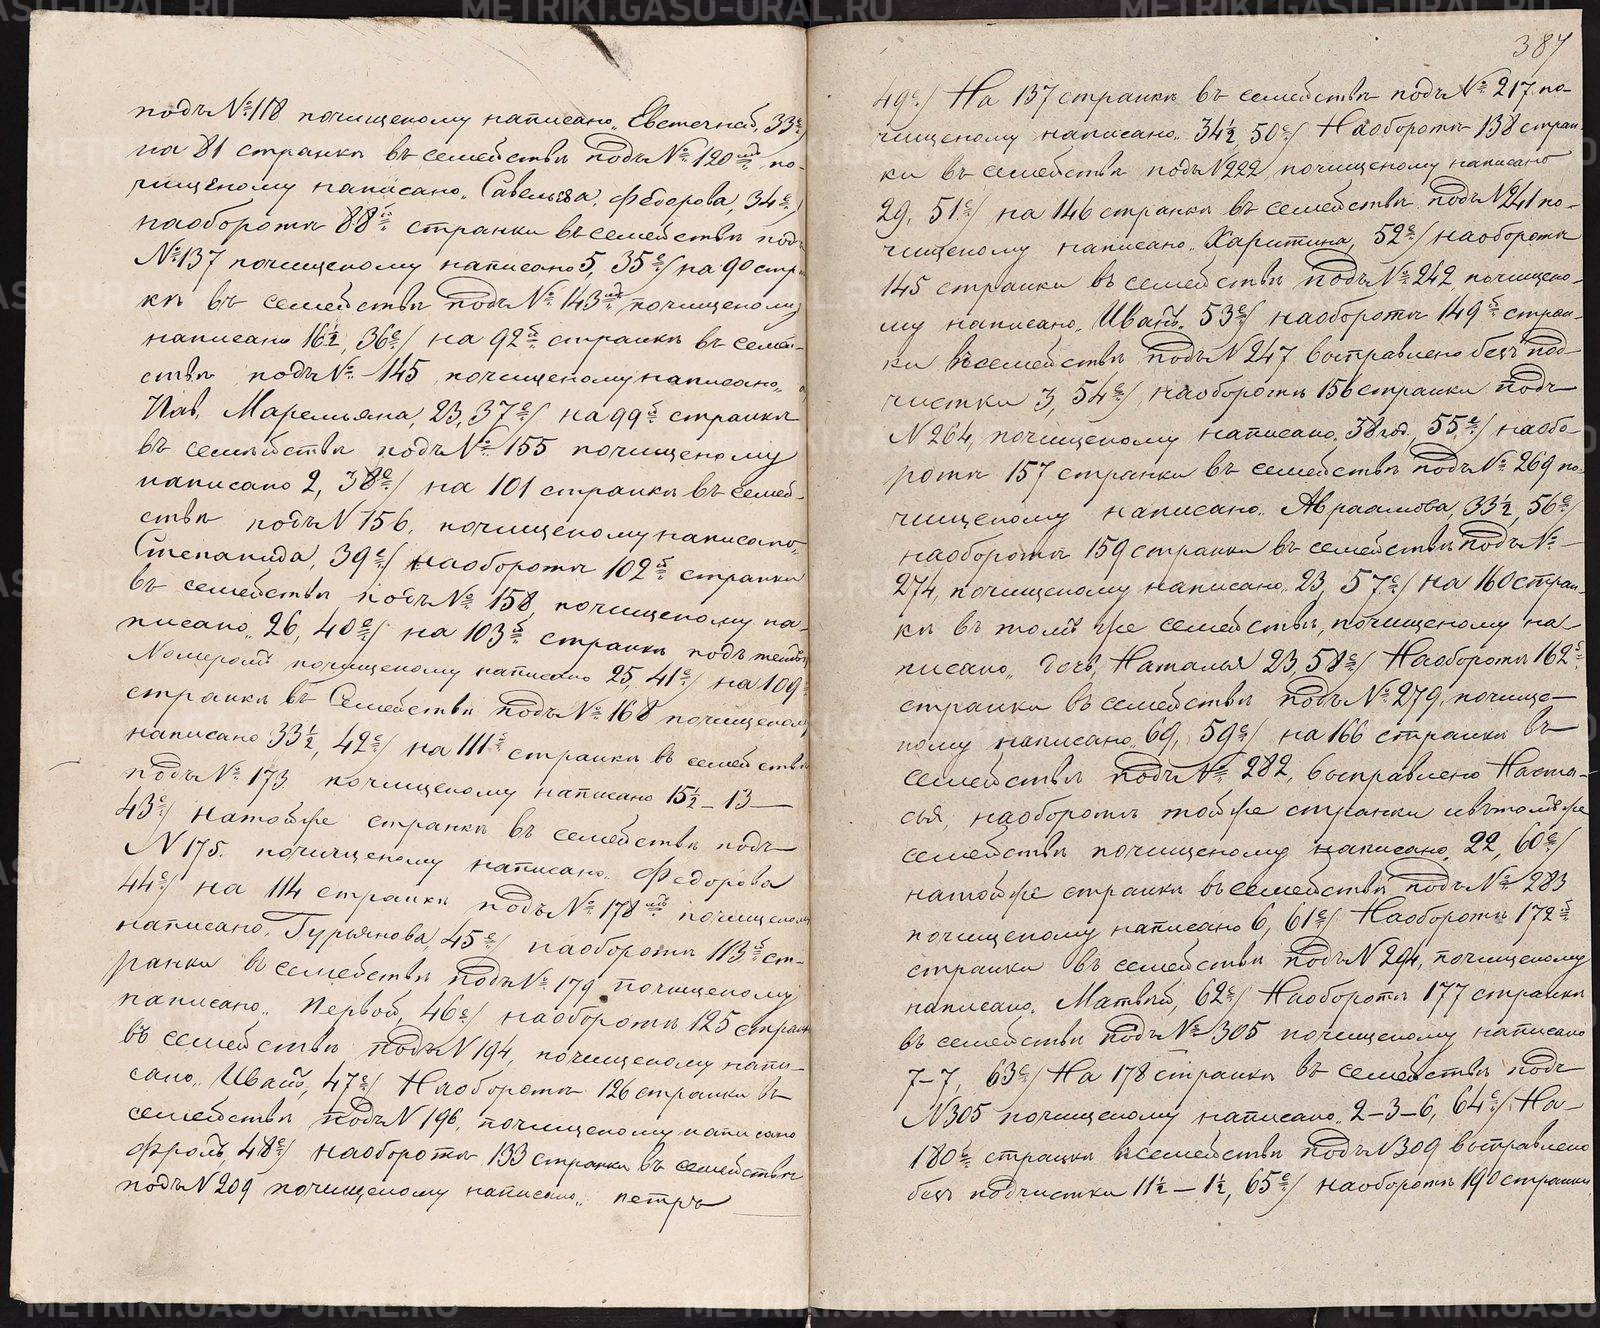 подъ №118 почищеному написано „Евстигнеѣ, 33е/
на 81 странкѣ въ семействѣ подъ № 120мъ по-
чищеному написано „Савельева, Федорова, 34е/
на оборотѣ 88й странки въ семействѣ подъ
№137 почищеному написано 5, 35е/ на 90 стр
кѣ въ семействѣ подъ № 143мъ почищеному
написано 16½, 36е/ на 92й странкѣ въ семей-
ствѣ подъ № 145 почищеному написано „
Иав, Маремьяна, 23, 37е/ на 99й странкѣ
въ семействѣ подъ № 155 почищеному
написано 2, 38е/ на 101 странкѣ въ семей-
ствѣ подъ N 156, почищеному написано „
Степанида, 39е/ на оборотѣ 102й странки
въ семействѣ подъ № 158, почищеному на-
писано „ 26, 40е/ на 103й странкѣ подъ темъ
Номеромъ почищеному написано 25, 41е/ на 109й
странкѣ въ Семействѣ подъ № 168 почищеному
написано 33½, 42е/ на 111й странкѣ въ семействѣ
подъ № 173 почищеному написано 15½ – 13 —
43е/ на той же странкѣ въ семействѣ подъ
N 175. почищеному написано „ Федорова
44е/ на 114 странкѣ подъ № 178мъ почищеному
написано, Гурьянова, 45е/ на оборотѣ 113й ст-
ранки въ семействѣ подъ № 179 почищеному
написано „ Первой, 46е/ на оборотѣ 125 стран
въ семействѣ подъ N 194, почищеному напи-
сано „ Иванъ, 47е/ На оборотѣ 126 странки въ
семействѣ подъ N 196, почищеному написано
Фролъ, 48е/ на оборотѣ 133 странки въ семействѣ
подъ N 209 почищеному написано „ петръ —
387
49е/ На 137 странкѣ въ семействѣ подъ № 217 по-
чищеному написано „ 34½, 50е/ На оборотѣ 138 стран-
ки въ семействѣ подъ N222, почищеному написано
29, 51е/ на 146 странкѣ въ семействѣ подъ N241 по-
чищеному написано „ Харитина, 52е/ на оборотѣ
145 странки въ семействѣ подъ № 242, почищено-
му написано „ Иванъ „ 53е/ на оборотѣ 149й стран-
ки въ семействѣ подъ N 247 восправлено безъ под-
чистки 3, 54е/ на оборотѣ 156 странки подъ
N 264, почищеному написано „ 38 год. 55е/ на обо-
ротѣ 157 странки въ семействѣ подъ № 269 по-
чищеному написано „ Авраамова, 33½, 56е/
на оборотѣ 159 странки въ семействѣ подъ № —
274, почищеному написано „ 23, 57е/ на 160 стран-
кѣ въ томъ же семействѣ, почищеному на-
писано „ дочь, Наталья 23, 58е/ На оборотѣ 162й
странки въ семействѣ подъ № 279, почище-
ному написано „ 69, 59е/ на 166 странкѣ въ
семействѣ подъ № 282, восправлено Наста-
сья, на оборотѣ той же странки и въ томъ же
семействѣ почищеному написано „ 22, 60е/
на той же странкѣ въ семействѣ подъ № 283
почищеному написано 6, 61е/ На оборотѣ 172й
странки въ семействѣ подъ N 294, почищеному
написано „ Матвѣй, 62е/ На оборотѣ 177 странки
въ семействѣ подъ № 305 почищеному написано
7–7, 63е/ На 178 странкѣ въ семействѣ подъ
N 305 почищеному написано „ 2–3–6, 64е/ На —
180й странкѣ въ семействѣ подъ N 309 восправлено
безъ подчистки 11½ – 1½, 65е/ на оборотѣ 190 странки